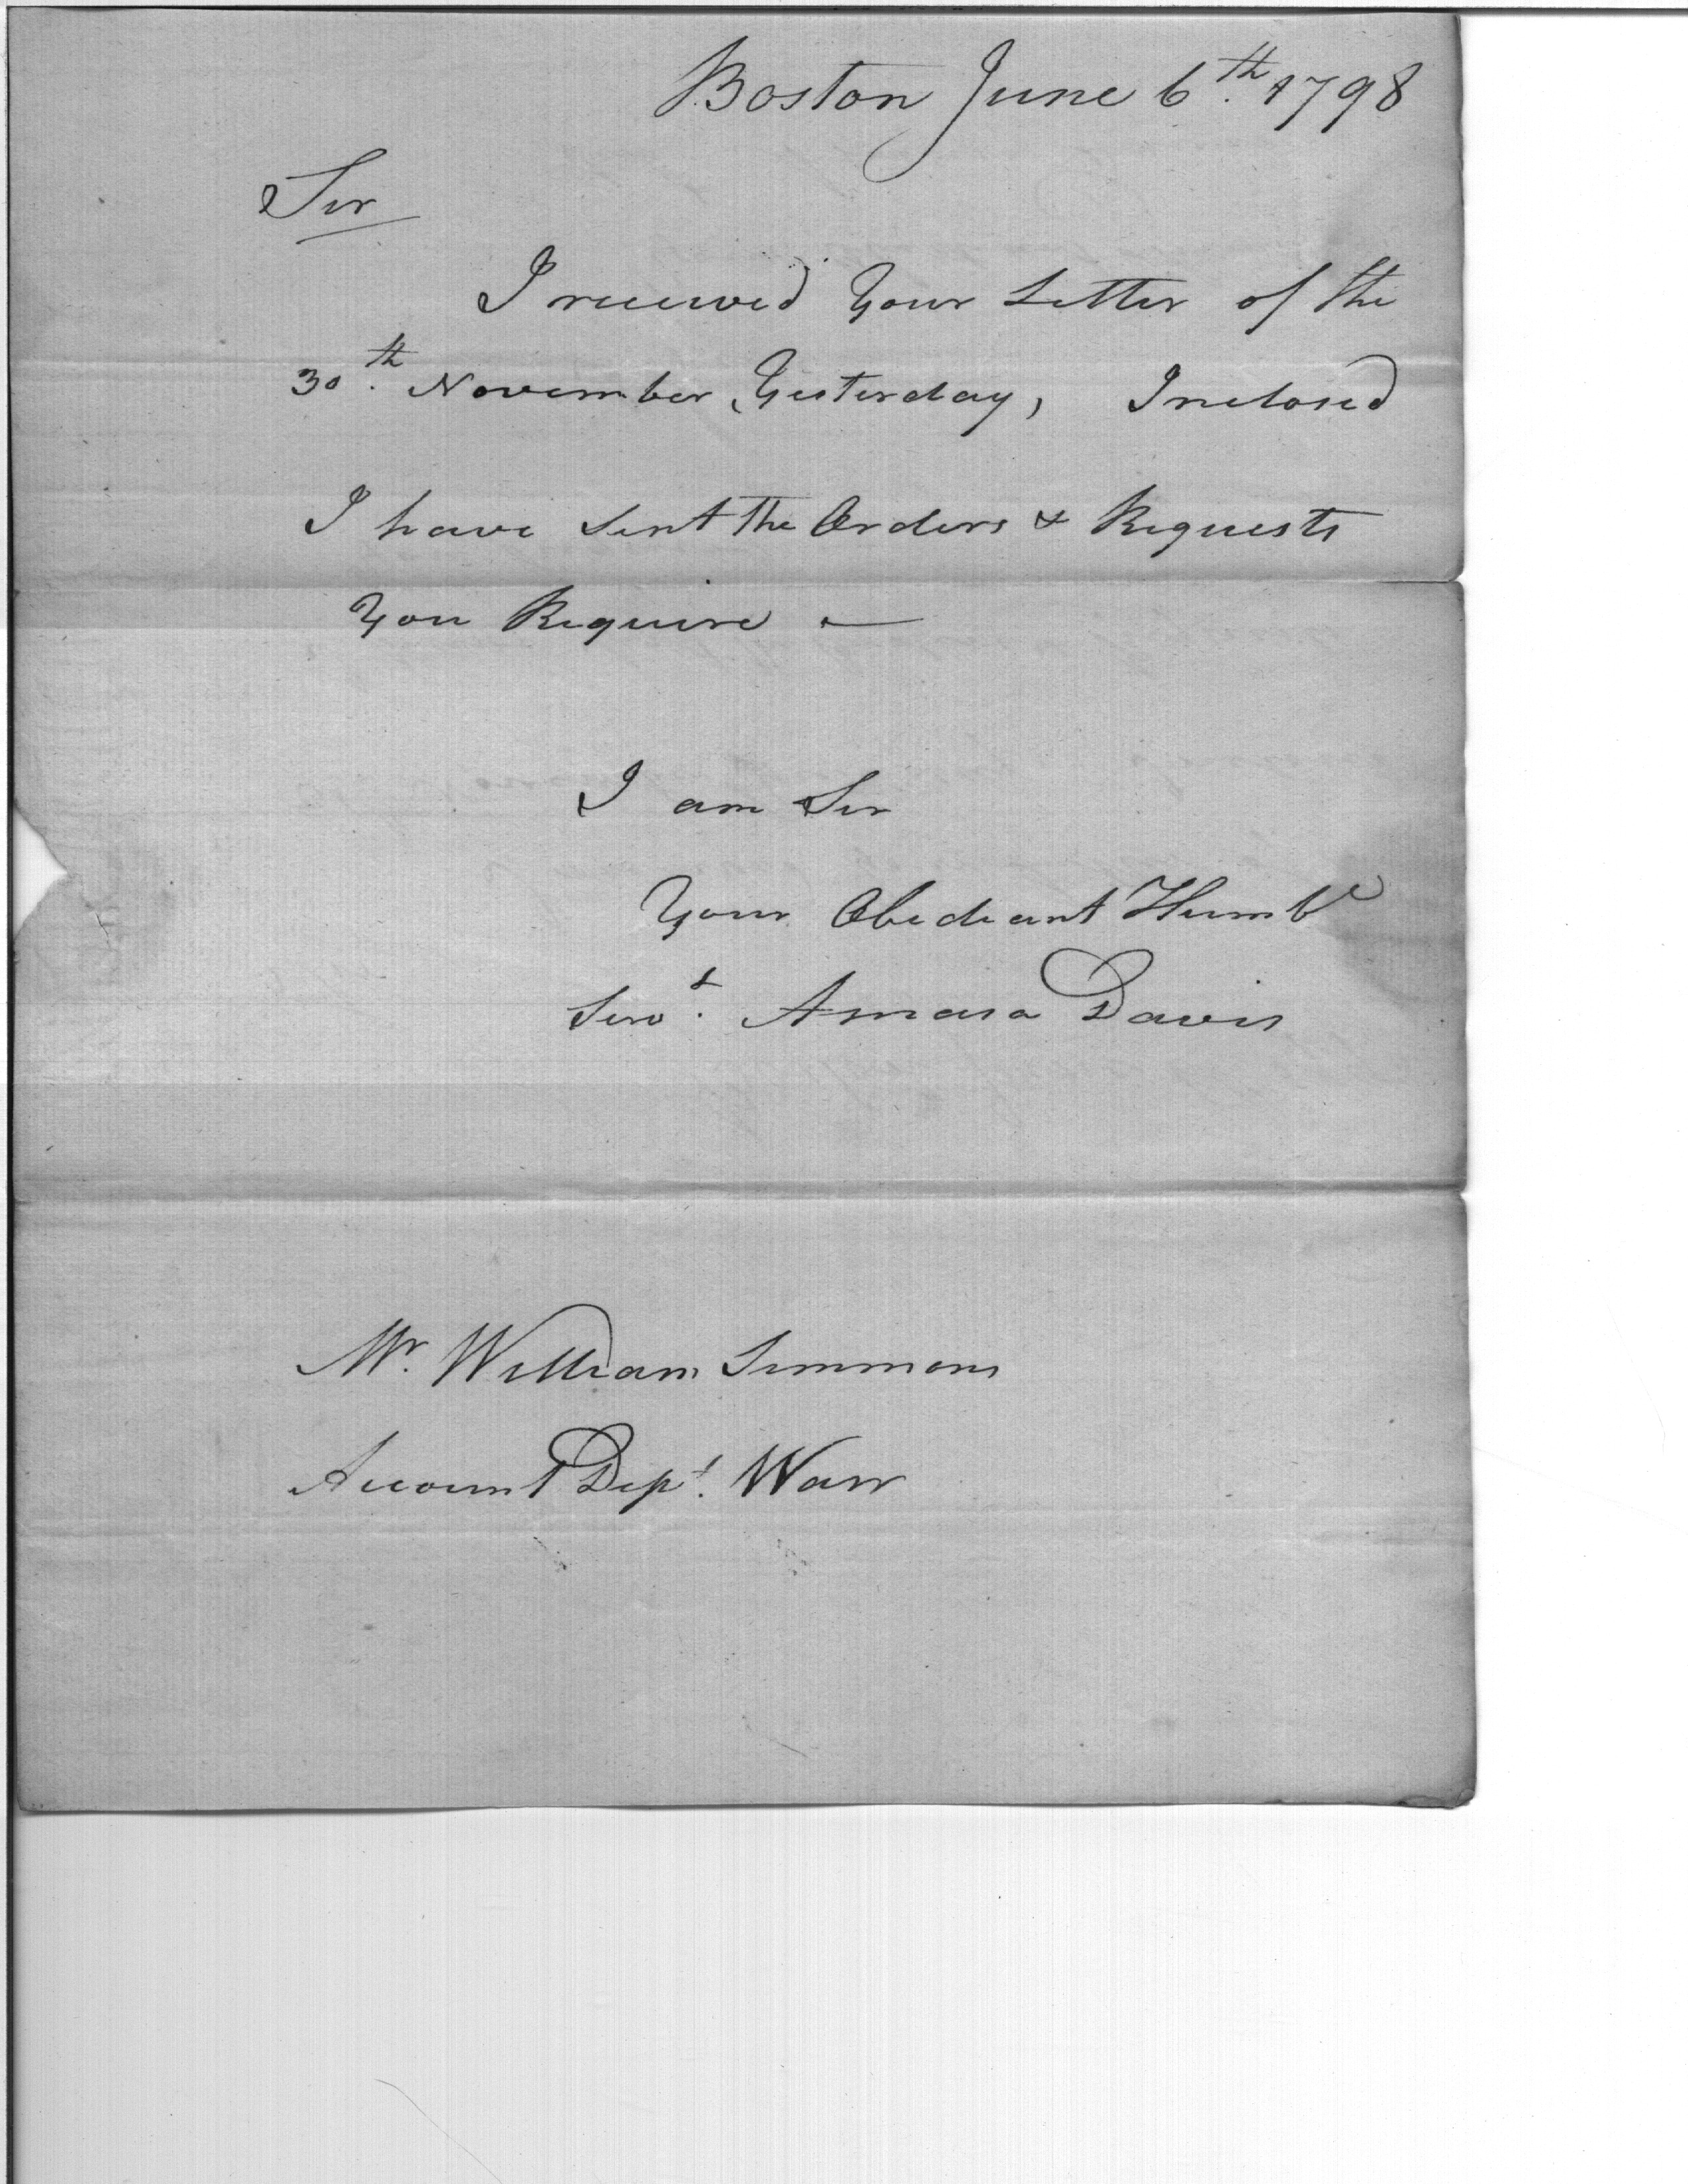 Boston June 6th. 1798
Sir
I received Your Letter of the
30th. November, Yesterday, Inclosed
I have Sent the Orders & Requests
You Require —
I am Sir
Your Obediant Humbe
Servt. Amasa Davis
Mr. William Simmons
Account Dept. Warr